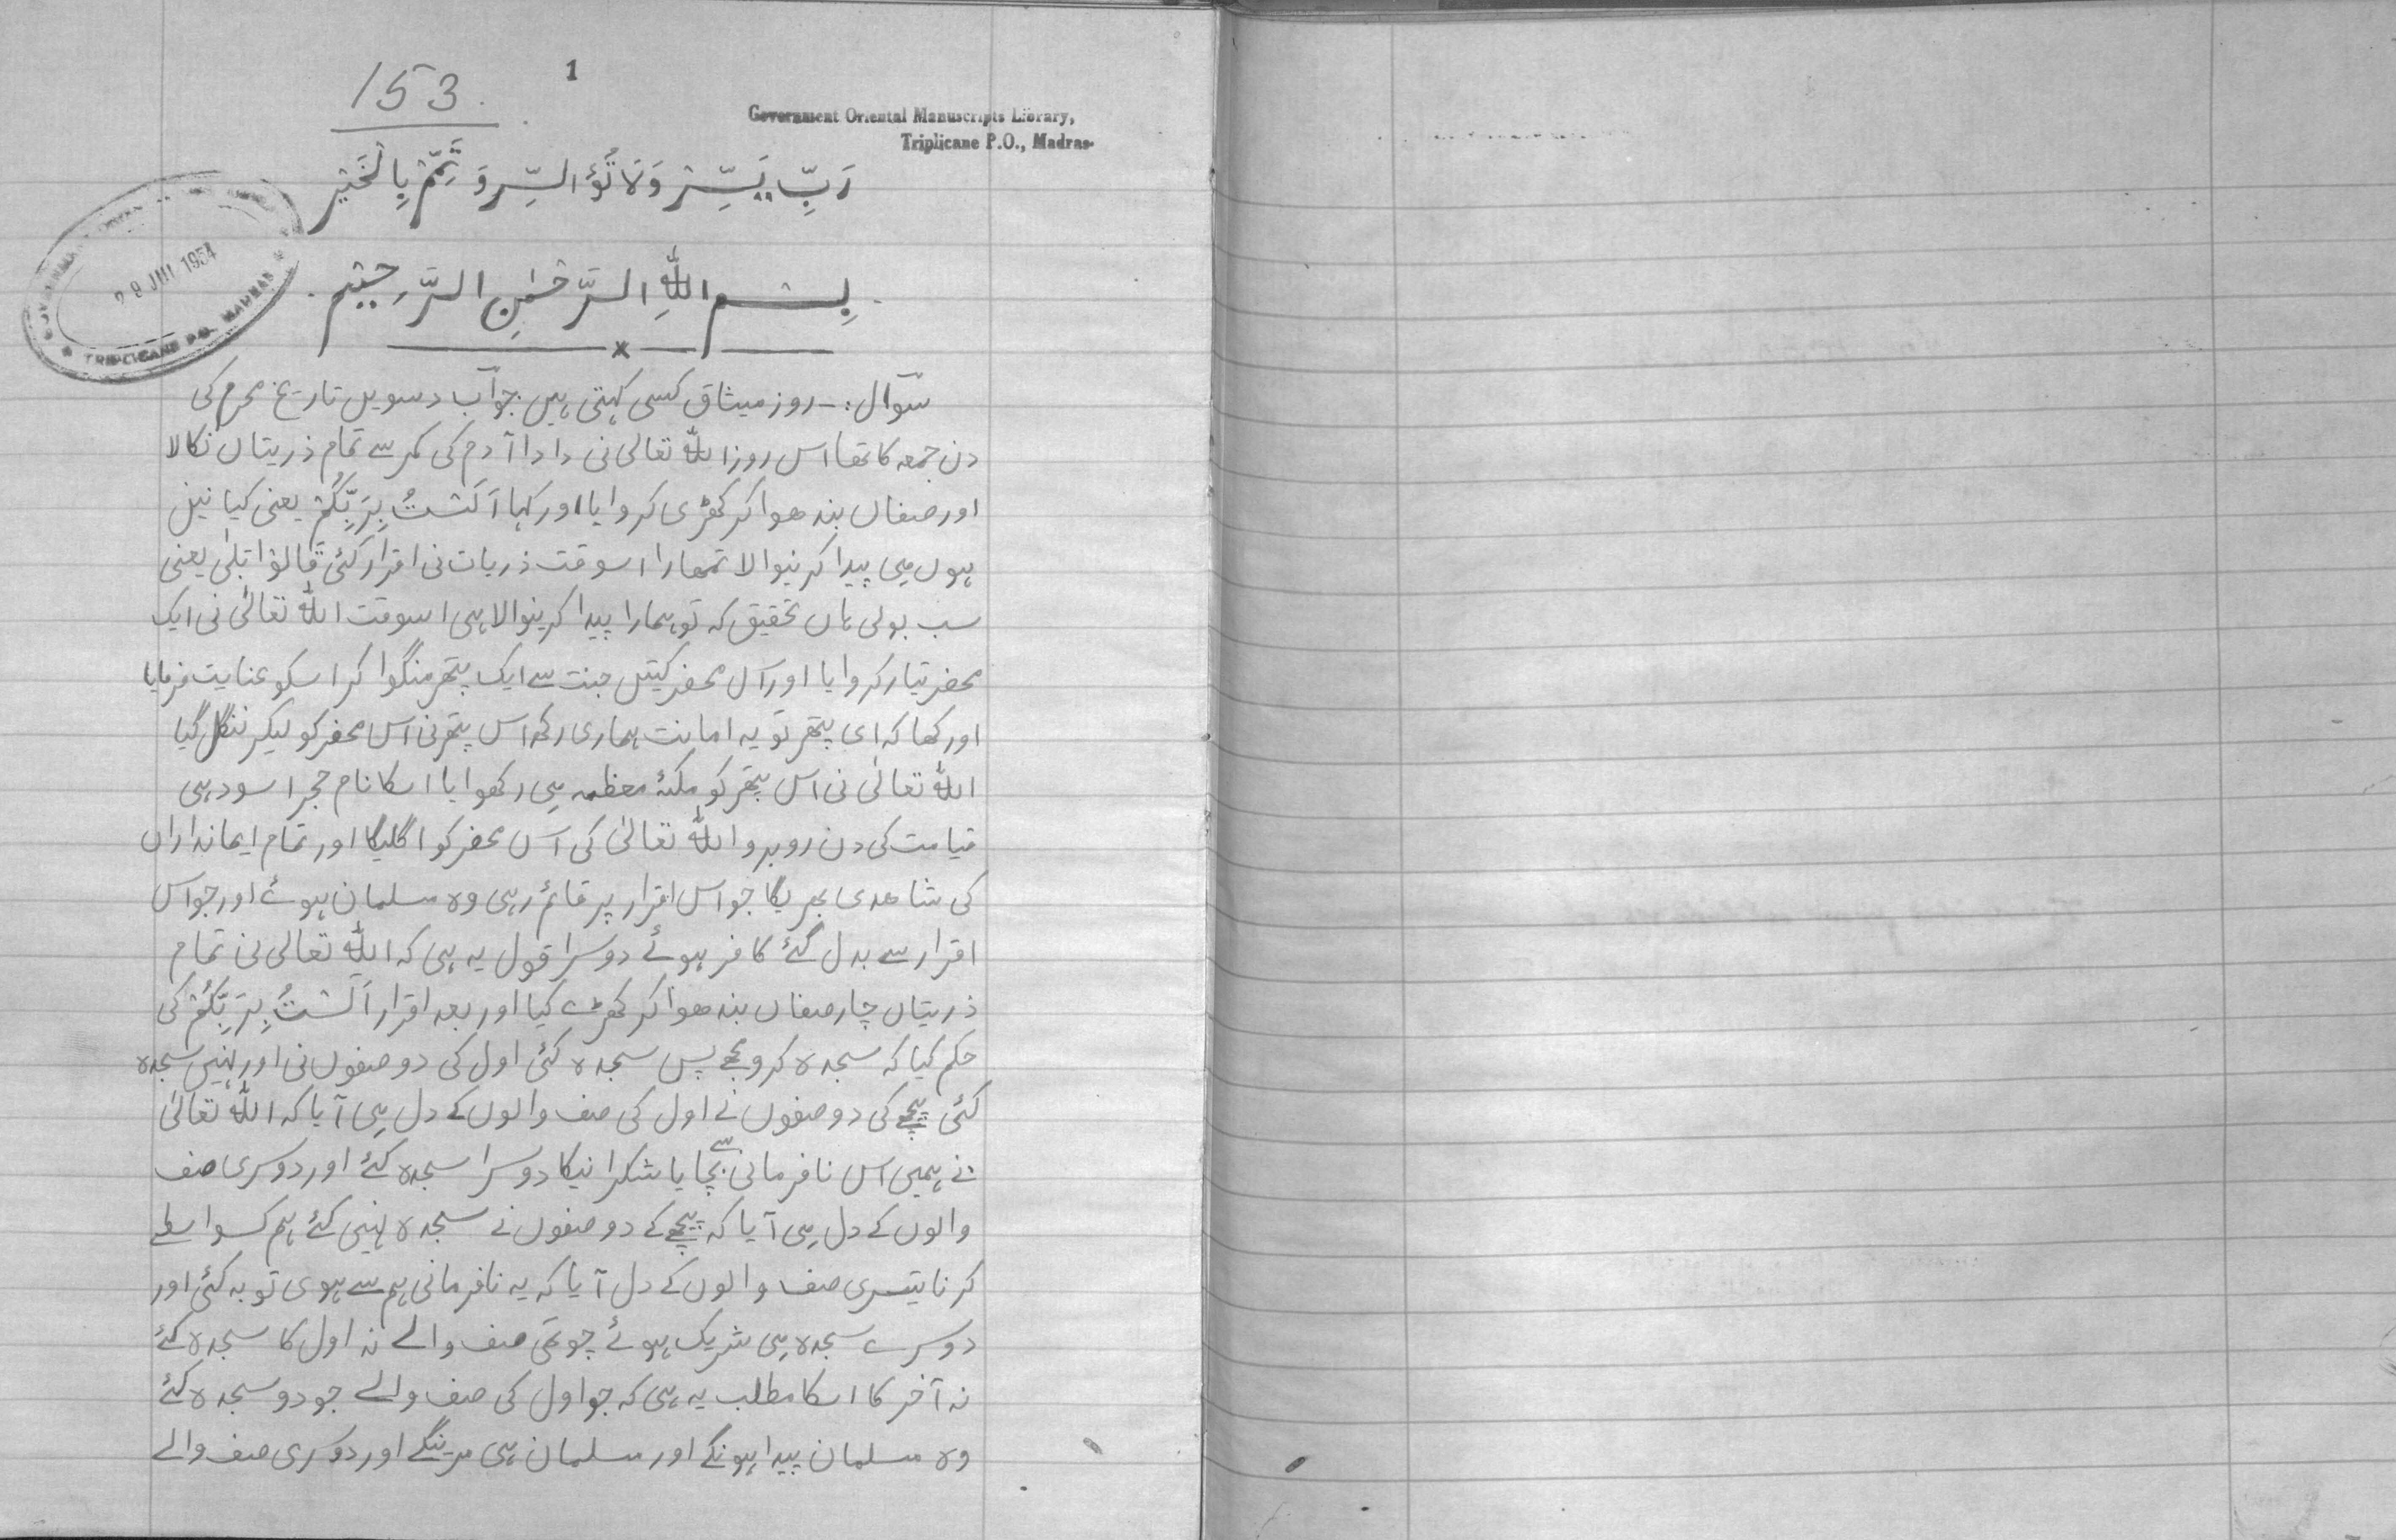 1
153.
Government Oriental Manuscripts Library,
Triplicane P.O., Madras-
رَبِّ یَسِّرْ وَلَا تُؤَالسِّر وَ تَمِّمْ بِالْخَیْر
28 JUN 1954
TRIPLICANE P.O. MADRAS
بِسْمِ اللّٰهِ الرَّحْمٰنِ الرَّحِیْم
سوال :- روز میثاق کسی کہتی ہیں جواب دسویں تاریخ محرم کی
دن جمعہ کا تھا اس روز اللّٰہ تعالی نی دادا آدم کی کمر سے تمام ذریتاں نکالا
اور صفاں بندھوا کر کھڑی کروایا اور کہا اَلَسْتُ بِرَبِّکُمْ یعنی کیا نیں
ہوں میں پیدا کرنیوالا تمھارا اسوقت ذریات نی اقرار کئی قَالُوْا بَلٰی یعنی
سب بولی ہاں تحقیق کہ تو ہمارا پیدا کرنیوالا ہی اسوقت اللّٰہ تعالیٰ نی ایک
محضر تیار کروایا اور اس محضر کیتیں جنت سے ایک پتھر منگوا کر اسکو عنایت فرمایا
اور کھا کہ ای پتھر تو یہ امانت ہماری رکھ اس پتھر نی اس محضر کو لیکر ننگل گیا
اللّٰہ تعالیٰ نی اس پتھر کو مکۂ معظمہ میں رکھوایا اسکا نام حجر اسود ہی
قیامت کی دن روبرو اللّٰہ تعالیٰ کی اس محضر کو اگلیگا اور تمام ایمانداراں
کی شاھدی بھریگا جو اس اقرار پر قائم رہی وہ مسلمان ہوئے اور جو اس
اقرار سے بدل گئے کافر ہوئے دوسرا قول یہ ہی کہ اللّٰہ تعالی نی تمام
ذریتاں چار صفاں بندھوا کر کھڑے کیا اور بعد اقرار اَلَسْتُ بِرَبِّکُمْ کی
حکم کیا کہ سجدہ کرو مجھے پس سجدہ کئی اول کی دو صفوں نی اور نہیں سجدہ
کئی پیچھے کی دو صفوں نے اول کی صف والوں کے دل میں آیا کہ اللّٰہ تعالیٰ
نے ہمیں اس نافرمانی سے بچایا شکرانیکا دوسرا سجدہ کئے اور دوسری صف
والوں کے دل میں آیا کہ پیچھے کے دو صفوں نے سجدہ نہیں کئے ہم کسواسطے
کرنا تیسری صف والوں کے دل آیا کہ یہ نافرمانی ہم سے ہوی توبہ کئی اور
دوسرے سجدہ میں شریک ہوئے چوتھی صف والے نہ اول کا سجدہ کئے
نہ آخر کا اسکا مطلب یہ ہی کہ جو اول کی صف والے جو دو سجدہ کئے
وہ مسلمان پیدا ہونگے اور مسلمان ہی مرینگے اور دوسری صف والے